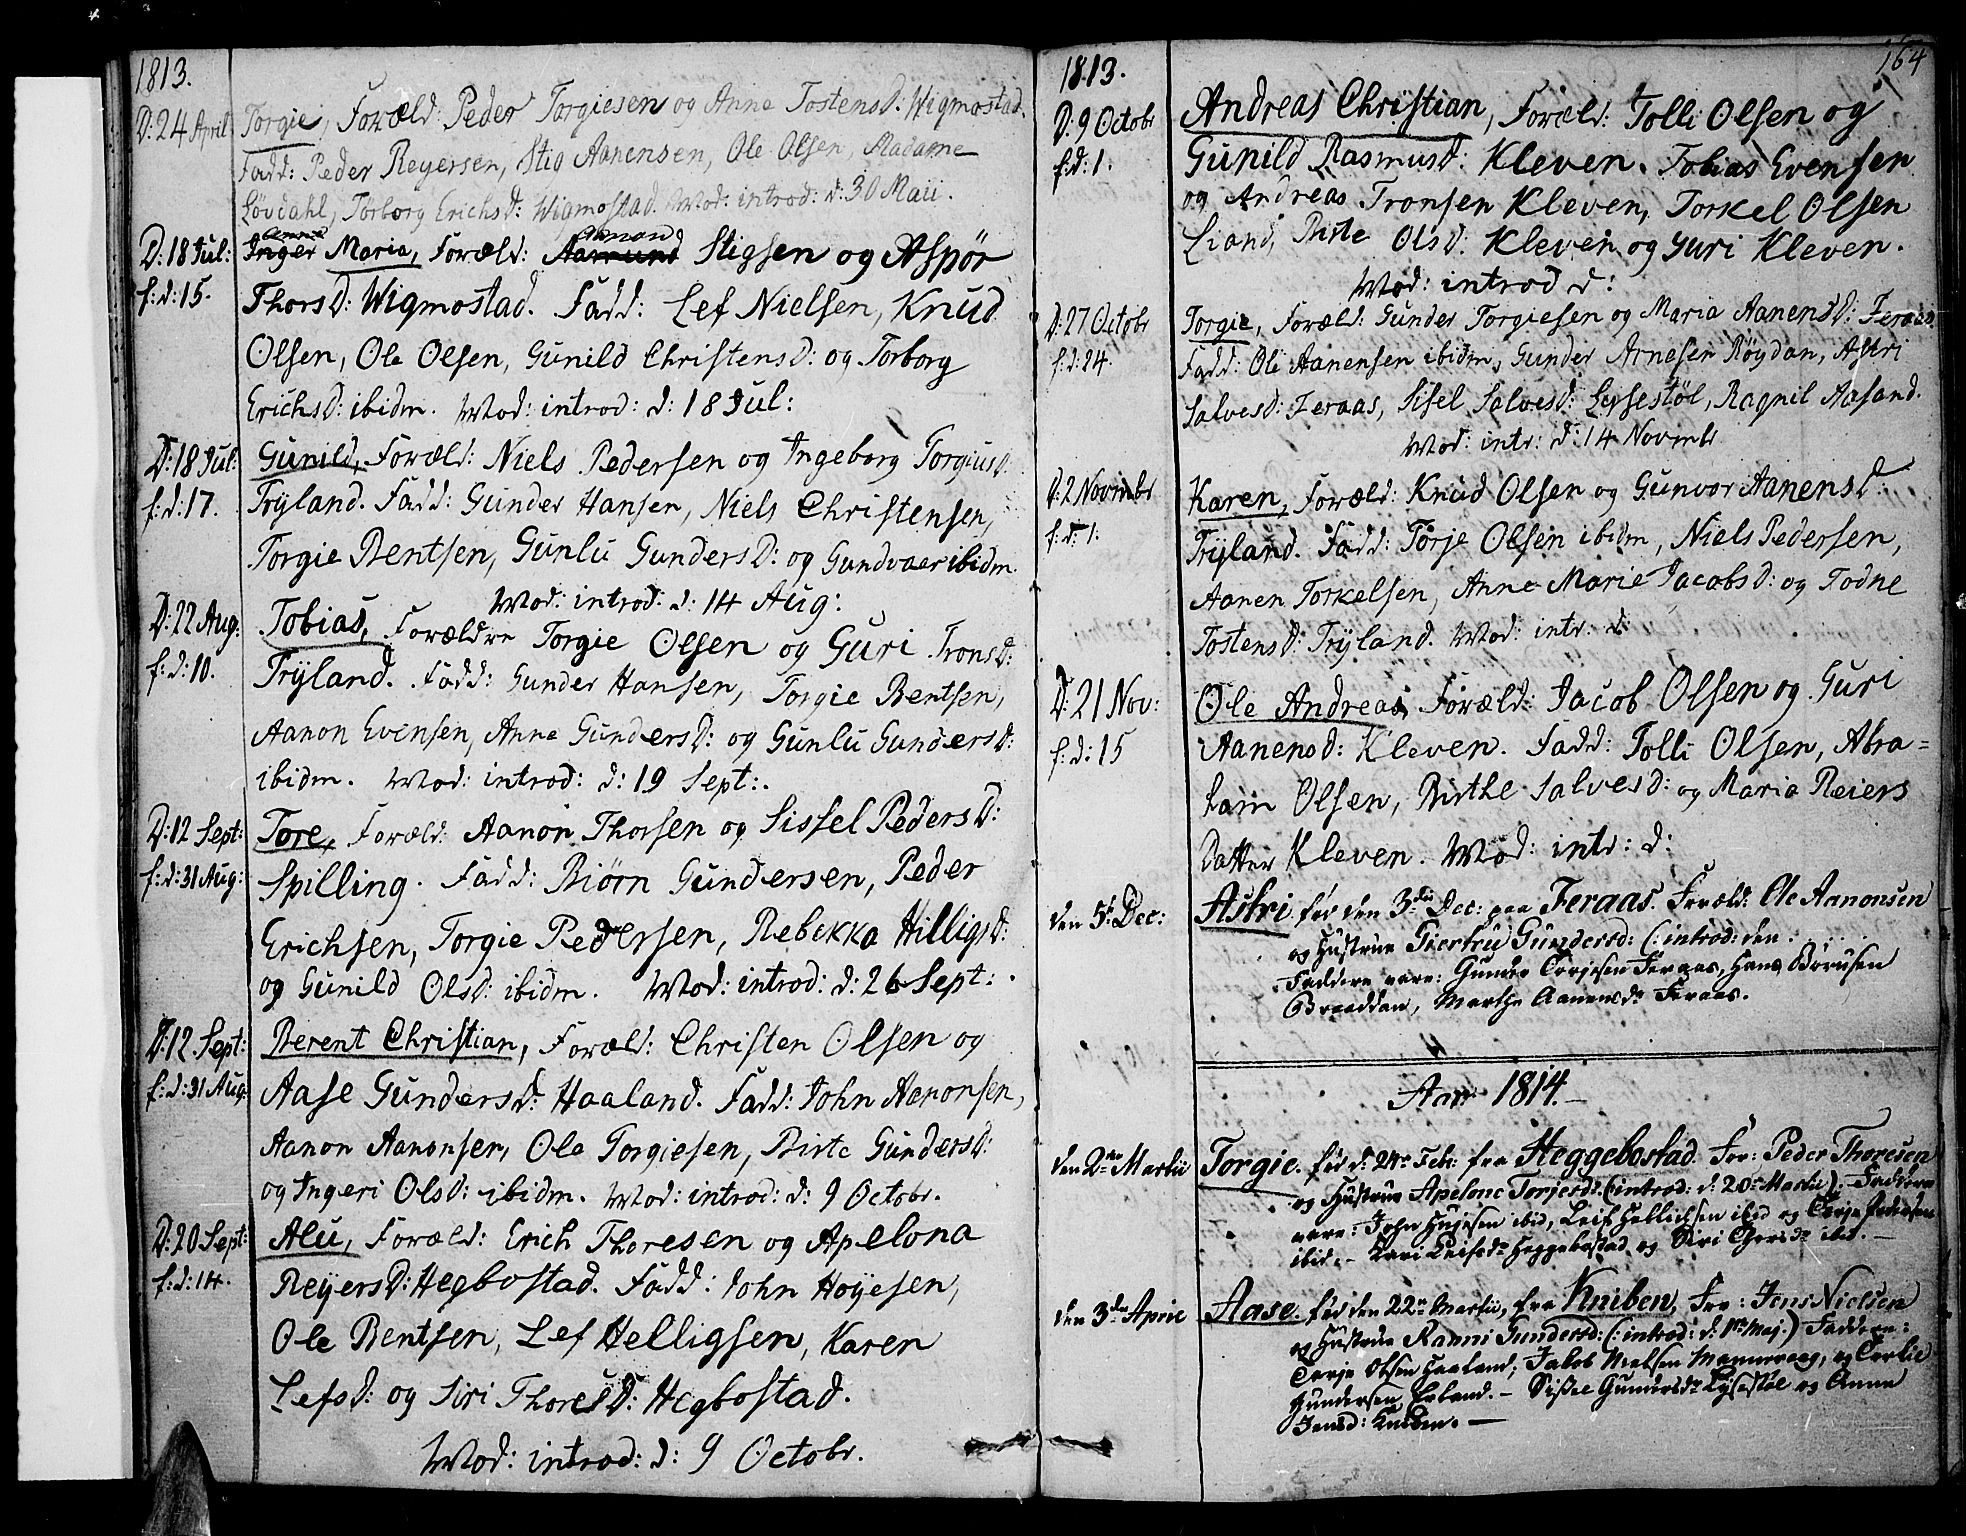 1813.
D: 24 April Torgie, Foræld: Peder Torgiesen og Anne Tostensd: Wigmostad.
Fadd: Peder Reyersen, Stig Aanensen, Ole Olsen, Madame
Løvdahl, Torborg Erichsd: Wigmostad. Mod: introd: d: 30 Maii.
Anne Aanon
D: 18 Jul: Inger Maria, Foræld: Aamund Stigsen og Aspör
f: d: 15. Thorsd: Wigmostad. Fadd: Lef Nielsen, Knud
Olsen, Ole Olsen, Gunild Christensd: og Torborg
Erichsd: ibidm. Mod: introd: d: 18 Jul:
D: 18 Jul: Gunild, Foræld: Niels Pedersen og Ingeborg Torgiusd:
f: d: 17. Trÿland. Fadd: Gunder Hansen, Niels Christensen,
Torgie Bentsen, Gunlu Gundersd: og Gundvaer ibidm.
Mod: introd: d: 14 Aug:
D: 22 Aug: Tobias, Forældre Torgie Olsen og Guri Tronsd:
f: d: 10. Trÿland. Fadd: Gunder Hansen, Torgie Bentsen,
Aanon Evensen, Anne Gundersd: og Gunlu Gundersd:
ibidm. Mod: introd: d: 19 Sept:.
D: 12 Sept: Tore, Foræld: Aanon Thorsen og Sissel Pedersd:
f: d: 31 Aug: Spilling. Fadd: Biörn Gundersen, Peder
Erichsen, Torgie Pedersen, Rebekka Hilligsd:
og Gunild Olsd: ibidm. Mod: introd: d: 26 Sept:.
D: 12 Sept: Berent Christian, Foræld: Christen Olsen og
f: d: 31 Aug: Aase Gundersd: Haaland. Fadd: John Aanonsen,
Aanon Aanonsen, Ole Torgiesen, Birte Gundersd:
og Ingeri Olsd: ibidm. Mod: introd: d: 9 Octobr.
D: 20 Sept: Alu, Foræld: Erich Thoresen og Apelona
f: d: 14. Reÿersd: Hegbostad. Fadd: John Hoÿesen,
Ole Bentsen, Lef Helligsen, Karen
Lefsd: og Siri Thoresd: Hegbostad.
Mod: introd: d: 9 Octobr.
164
1813.
D: 9 Octobr Andreas Christian, Foræld: Tolli Olsen og
f: d: 1. Gunild Rasmusd: Kleven. Tobias Evensen
og Andreas Tronsen Kleven, Torkel Olsen
Liand, Birte Olsd: Kleven og Guri Kleven.
Mod: introd d:
D: 27 Octobr Torgie, Foræld: Gunder Torgiesen og Maria Aanensd: Feraas
f: d: 24. Fadd: Ole Aanensen ibidm, Gunder Arnesen Röydan, Astri
Salvesd: Feraas, Sisel Salvesd: Leysestöl, Ragnil Aasand.
Mod: intr: d: 14 Novembr
D: 2 Novembr Karen, Foræld: Knud Olsen og Gunvor Aanensd:
f: d: 1. Trÿland. Fadd: Torje Olsen ibidm, Niels Pedersen,
Aanen Torkelsen, Anne Marie Jacobsd: og Todne
Tostensd: Trÿland. Mod: intr: d:
D: 21 Nov: Ole Andreas, Foræld: Jacob Olsen og Guri
f: d: 15 Aanensd: Kleven. Fadd: Tolli Olsen, Abra=
ham Olsen, Birthe Salvesd: og Maria Reiers
Datter Kleven. Mod: intr: d:
den 5t Dec: Astri fød den 3die Dec: paa Feraas. Foræld: Ole Aanonsen
og Hustrue Giertru Gundersd: (: introd: den . . . . .
Faddere vare: Gunder Terjesen Feraas, Hans
Braaddan, Marthe Aanensdr Feraas.
Aar 1814.
den 2den Martii Torgie. fød d: 24de Feb: fra Heggebostad. For: Peder Thoresen
og Hustrue Apelone Torjesdr. (: introd: d: 20de Martii) Faddere
vare: John Hujesen ibid, Leif Hellichsen ibid og Terje Pedersen
ibid. - Kari Leifsdr Heggebostad og Siri ibid. -
den 3die Aprie Aase. fød den 22de Martii, fra Kniben, For: Jens Nielsen
og Hustrue Ranni Gundersd: (: introd: d: 1ste Maj.) Faddere:
Terje Olsen Haaland, Jakob Nielsen og
Gundersen - Sißel Gundersdr Lÿsestöl og Anna
Jensd: Kniben. -